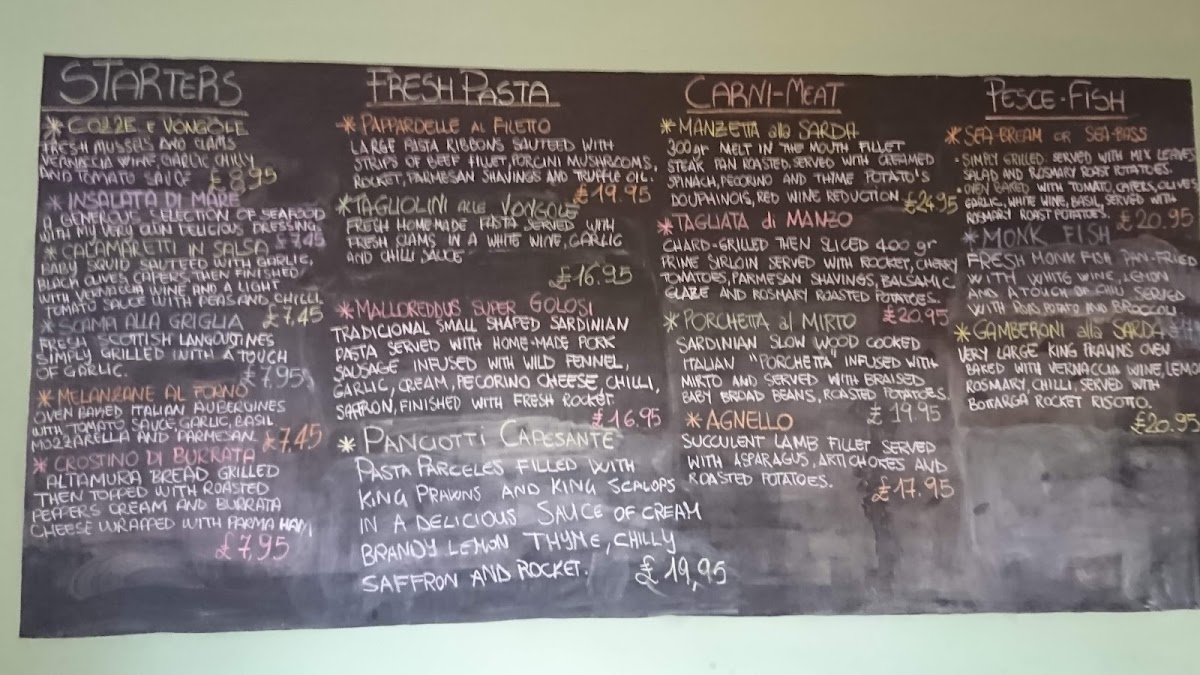 STARTERS
* COZZE E VONGOLE
FRESH MUSSELS AND CLAMS
VERNACCIA WINE, GARLIC CHILLY
AND TOMATO SAUCE £8,95
* INSALATA DI MARE
A GENEROUS SELECTION OF SEAFOOD
WITH MY VERY OWN DELICIOUS DRESSING.
£7,45
* CALAMARETTI IN SALSA
BABY SQUID SAUTEED WITH GARLIC,
BLACK OLIVES CAPERS THEN FINISHED
WITH WINE AND A LIGHT
TOMATO SAUCE WITH PEAS AND CHILLI.
£7,45
* SCAMPI ALLA GRIGLIA
FRESH SCOTTISH LANGOUSTINES
SIMPLY GRILLED WITH A TOUCH
OF GARLIC. £7,95
* MELANZANE AL FORNO
OVEN BAKED ITALIAN AUBERGINES
WITH TOMATO SAUCE, GARLIC, BASIL
MOZZARELLA AND PARMESAN £7,45
* CROSTINO DI BURRATA
ALTAMURA BREAD GRILLED
THEN TOPPED WITH ROASTED
PEPPERS CREAM AND BURRATA
CHEESE WRAPPED WITH PARMA HAM,
£7,95
FRESH PASTA
* PAPPARDELLE AL FILETTO
LARGE PASTA RIBBONS SAUTEED WITH
STRIPS OF BEEF FILLET, PORCINI MUSHROOMS,
ROCKET, PARMESAN SHAVINGS AND TRUFFLE OIL.
£19.95
* TAGLIOLINI ALLE VONGOLE
FRESH HOMEMADE PASTA SERVED WITH
FRESH CLAMS IN A WHITE WINE, GARLIC
AND CHILLI SAUCE
£16.95
* MALLOREDDUS SUPER GOLOSI
TRADICIONAL SMALL SHAPED SARDINIAN
PASTA SERVED WITH HOME-MADE PORK
SAUSAGE INFUSED WITH WILD FENNEL,
GARLIC, CREAM, PECORINO CHEESE, CHILLI,
SAFFRON, FINISHED WITH FRESH ROCKET.
£16.95
* PANCIOTTI CAPESANTE
PASTA PARCELES FILLED WITH
KING PRAWNS AND KING SCALOPS
IN A DELICIOUS SAUCE OF CREAM
BRANDY LEMON THYME, CHILLY
SAFFRON AND ROCKET. £19,95
CARNI-MEAT
* MANZETTA alla SARDA
300gr MELT IN THE MOUTH FILLET
STEAK PAN ROASTED SERVED WITH CREAMED
SPINACH, PECORINO AND THYME POTATO'S
DOUPHINOIS, RED WINE REDUCTION £24.95
* TAGLIATA di MANZO
CHARD-GRILLED THEN SLICED 400 gr
PRIME SIRLOIN SERVED WITH ROCKET, CHERRY
TOMATOES, PARMESAN SHAVINGS, BALSAMIC
GLAZE AND ROSMARY ROASTED POTATOES.
£20.95
* PORCHETTA al MIRTO
SARDINIAN SLOW WOOD COOKED
ITALIAN "PORCHETTA" INFUSED WITH
MIRTO AND SERVED WITH BRAISED
BABY BROAD BEANS, ROASTED POTATOES.
£19.95
* AGNELLO
SUCCULENT LAMB FILLET SERVED
WITH ASPARAGUS, ARTICHOKES AND
ROASTED POTATOES.
£17.95
PESCE-FISH
* SEA-BREAM OR SEA-BASS
• SIMPLY GRILLED. SERVED WITH MIX LEAVES
SALAD AND ROSMARY ROAST POTATOES.
• OVEN BAKED WITH TOMATO, CAPERS, OLIVES
GARLIC, WHITE WINE, BASIL, SERVED WITH
ROSMARY ROAST POTATOES. £20.95
* MONK FISH
FRESH MONK FISH PAN-FRIED
WITH WHITE WINE, LEMON
AND A TOUCH OF CHILI SERVED
WITH POTATO AND BROCCOLI
* GAMBERONI alla SARDA
VERY LARGE KING PRAWNS OVEN
BAKED WITH VERNACCIA WINE, LEMON
ROSMARY, CHILLI, SERVED WITH
BOTTARGA ROCKET RISOTTO.
£20.95